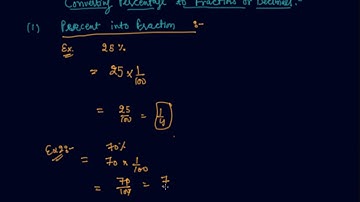 Converting Percentage to Fractions or Decimals:-
(1) Percent into fraction :-
Ex. 25%
= 25 × 1/100
= 25/100 = 1/4
Ex 2:- 70%
= 70 × 1/100
= 70/100 = 7